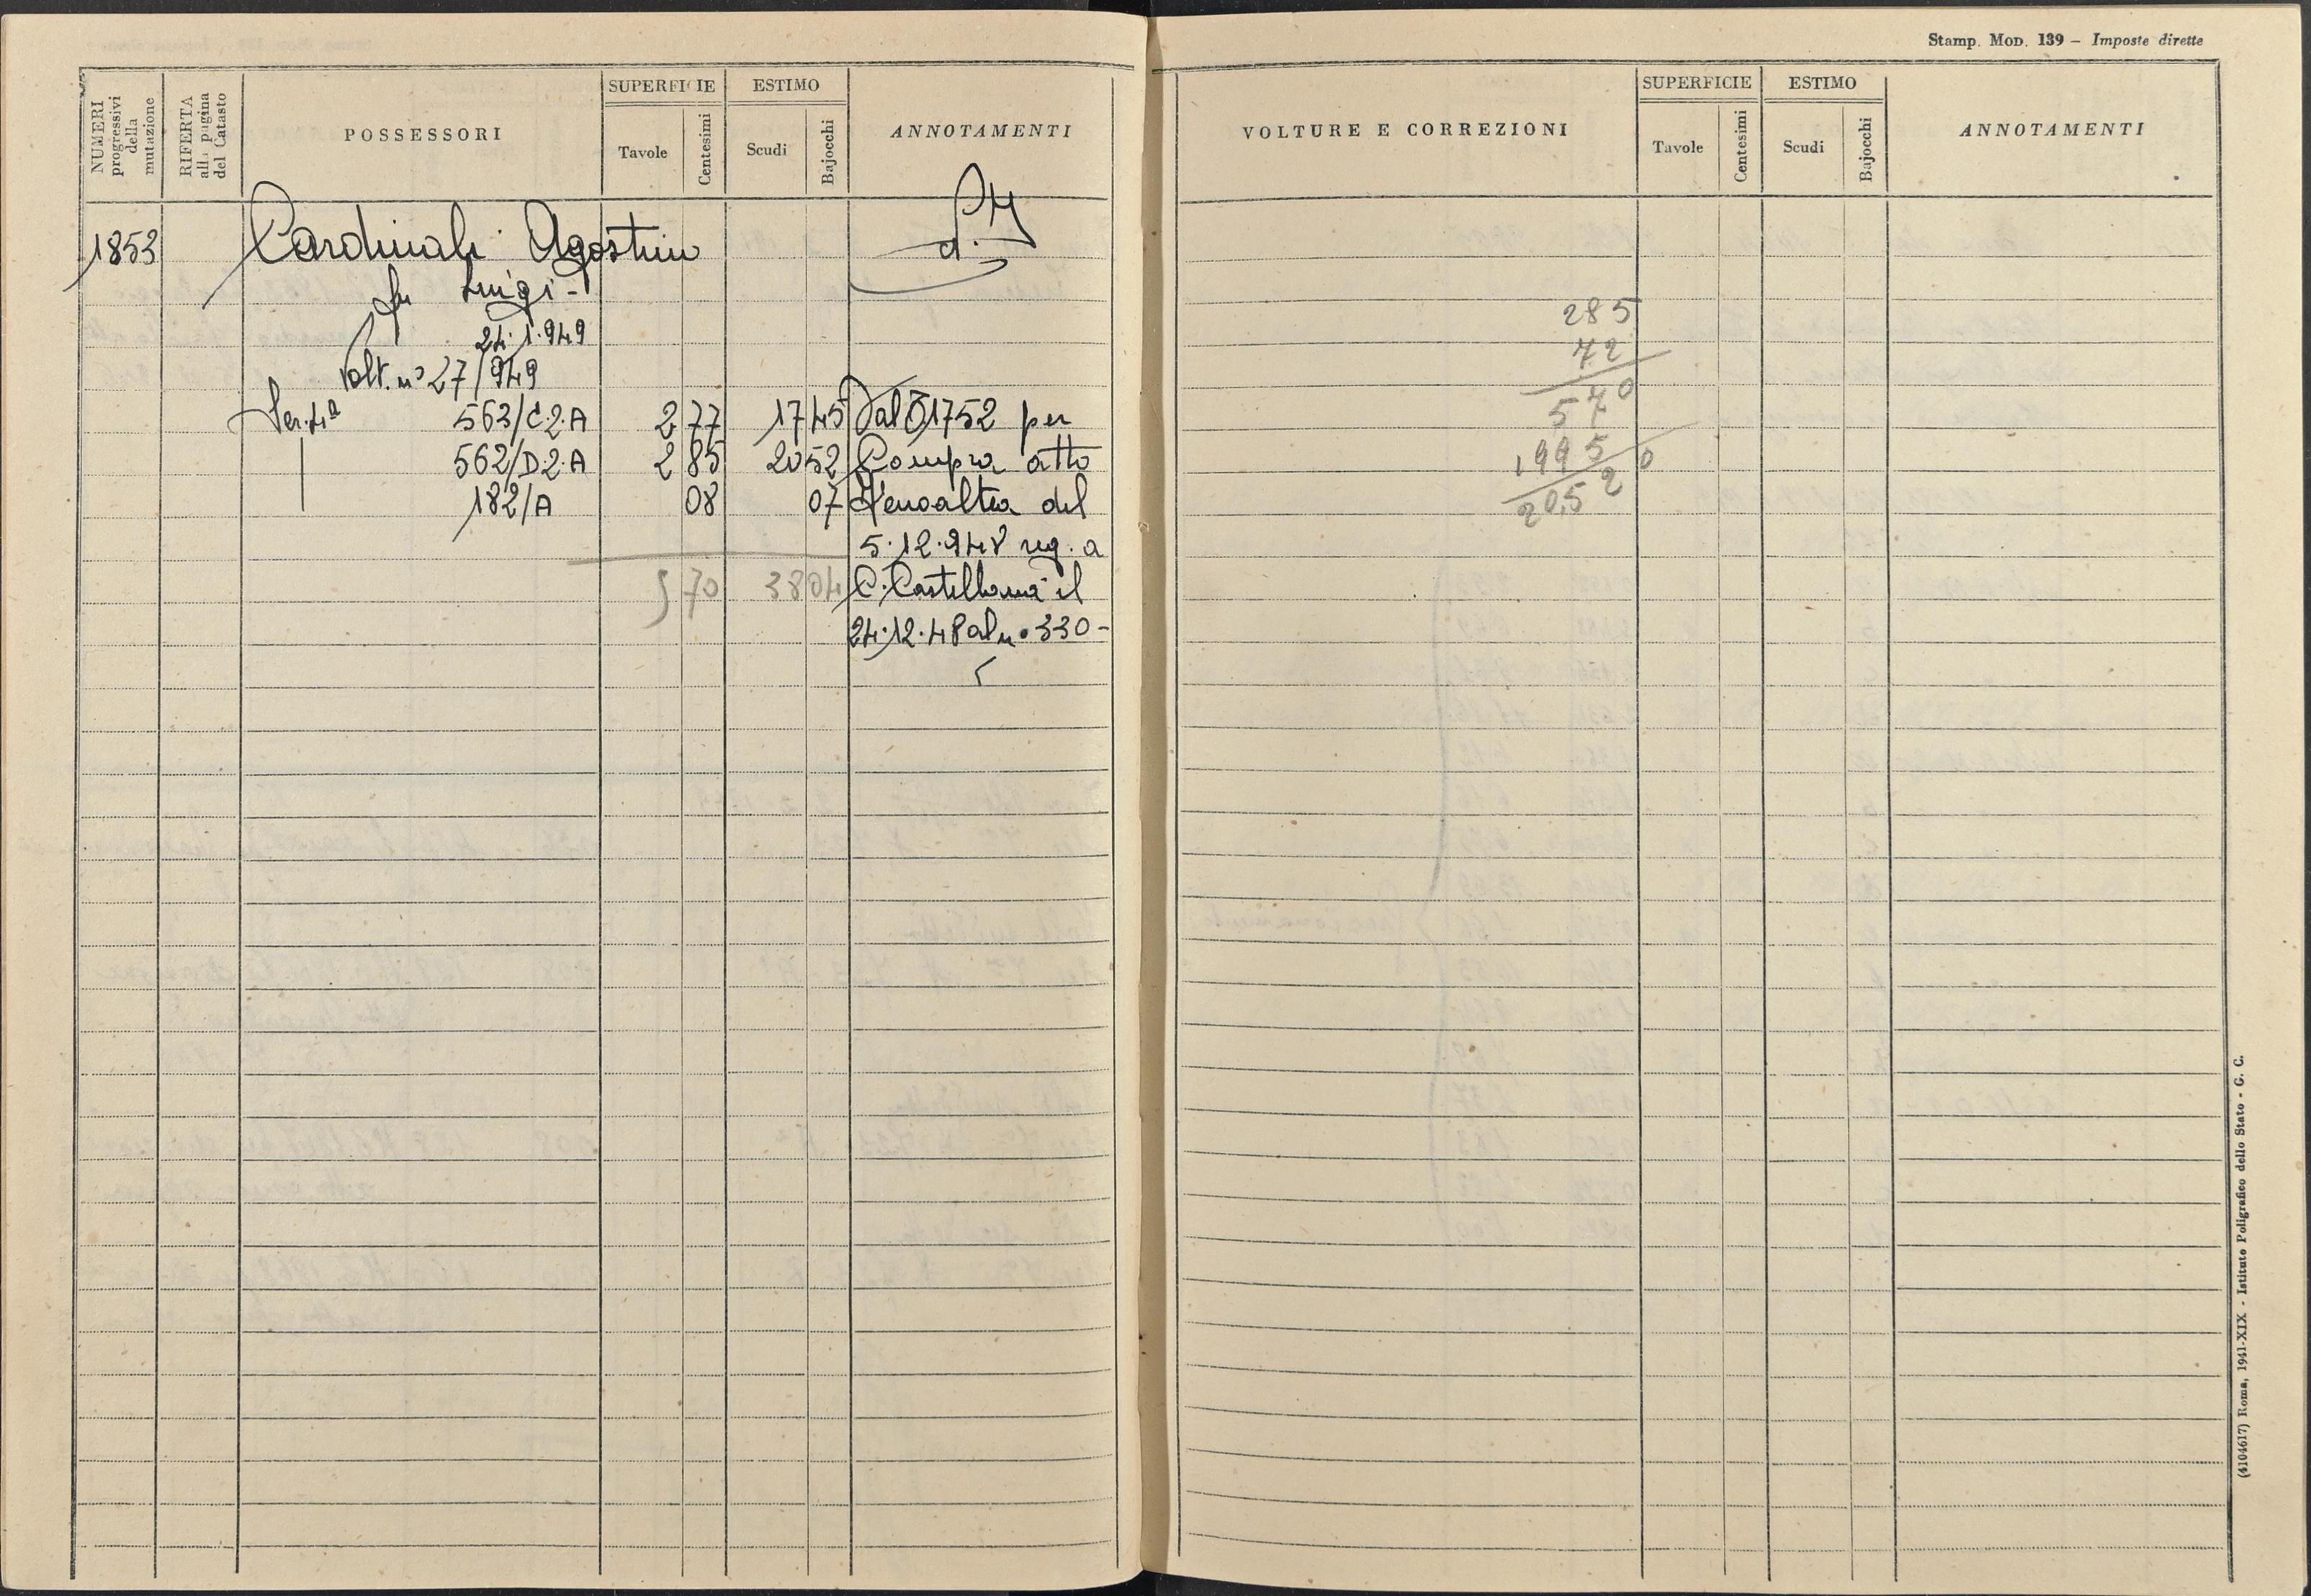 NUMERI progressivi della mutazione
RIFERTA alla pagina del Catasto
POSSESSORI
SUPERFICIE
Tavole
Centesimi
ESTIMO
Scudi
Bajocchi
ANNOTAMENTI
1853 Cardinali Agostino
fu Luigi -
24.1.949
Volt. nº 27/949
Sez. 4ª 563/C.2.A 2 77 17 45 Dal 1752 per
562/D2.A 2 85 20 52 Compra atto
182/A 08 07 Senoaltea del
5.12.948 reg. a
5 70 38 04 C. Castellana il
24.12.48 al n. 330 -
Stamp. Mod. 139 – Imposte dirette
VOLTURE E CORREZIONI
SUPERFICIE
Tavole
Centesimi
ESTIMO
Scudi
Bajocchi
ANNOTAMENTI
285
72
570
1995 0
20,52
(4104617) Roma, 1941-XIX - Istituto Poligrafico dello Stato - G. C.